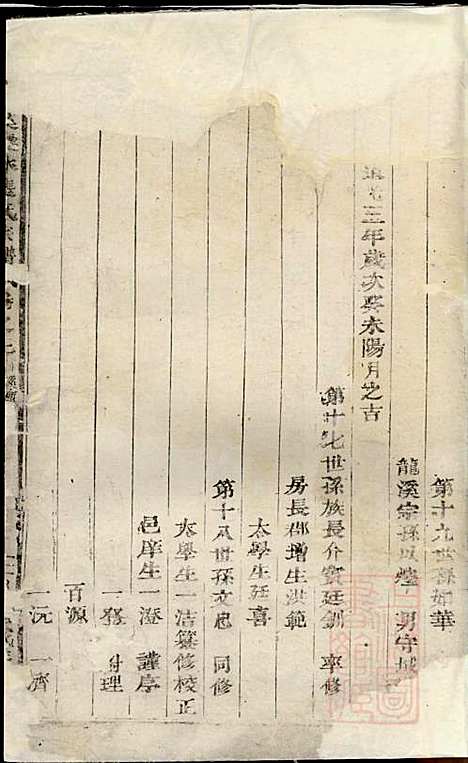 第十九世孫如華
龍溪宗孫以 男守城
三年歲次癸未陽月之吉
第十七世孫族長介賓廷釗 率修
房長郡增生洪範
太學生廷喜
第十八世孫文思 同修
太學生一洁纂修校正
邑庠生一澄 謹序
一 對理
百源
一沅 一濟
張氏宗譜